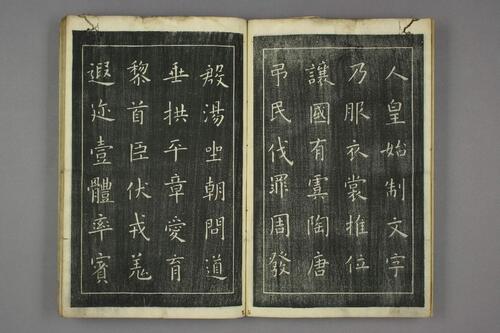 人皇始制文字
乃服衣裳推位
讓國有虞陶唐
吊民伐罪周發
殷湯坐朝問道
垂拱平章愛育
黎首臣伏戎羌
遐迩壹體率賓